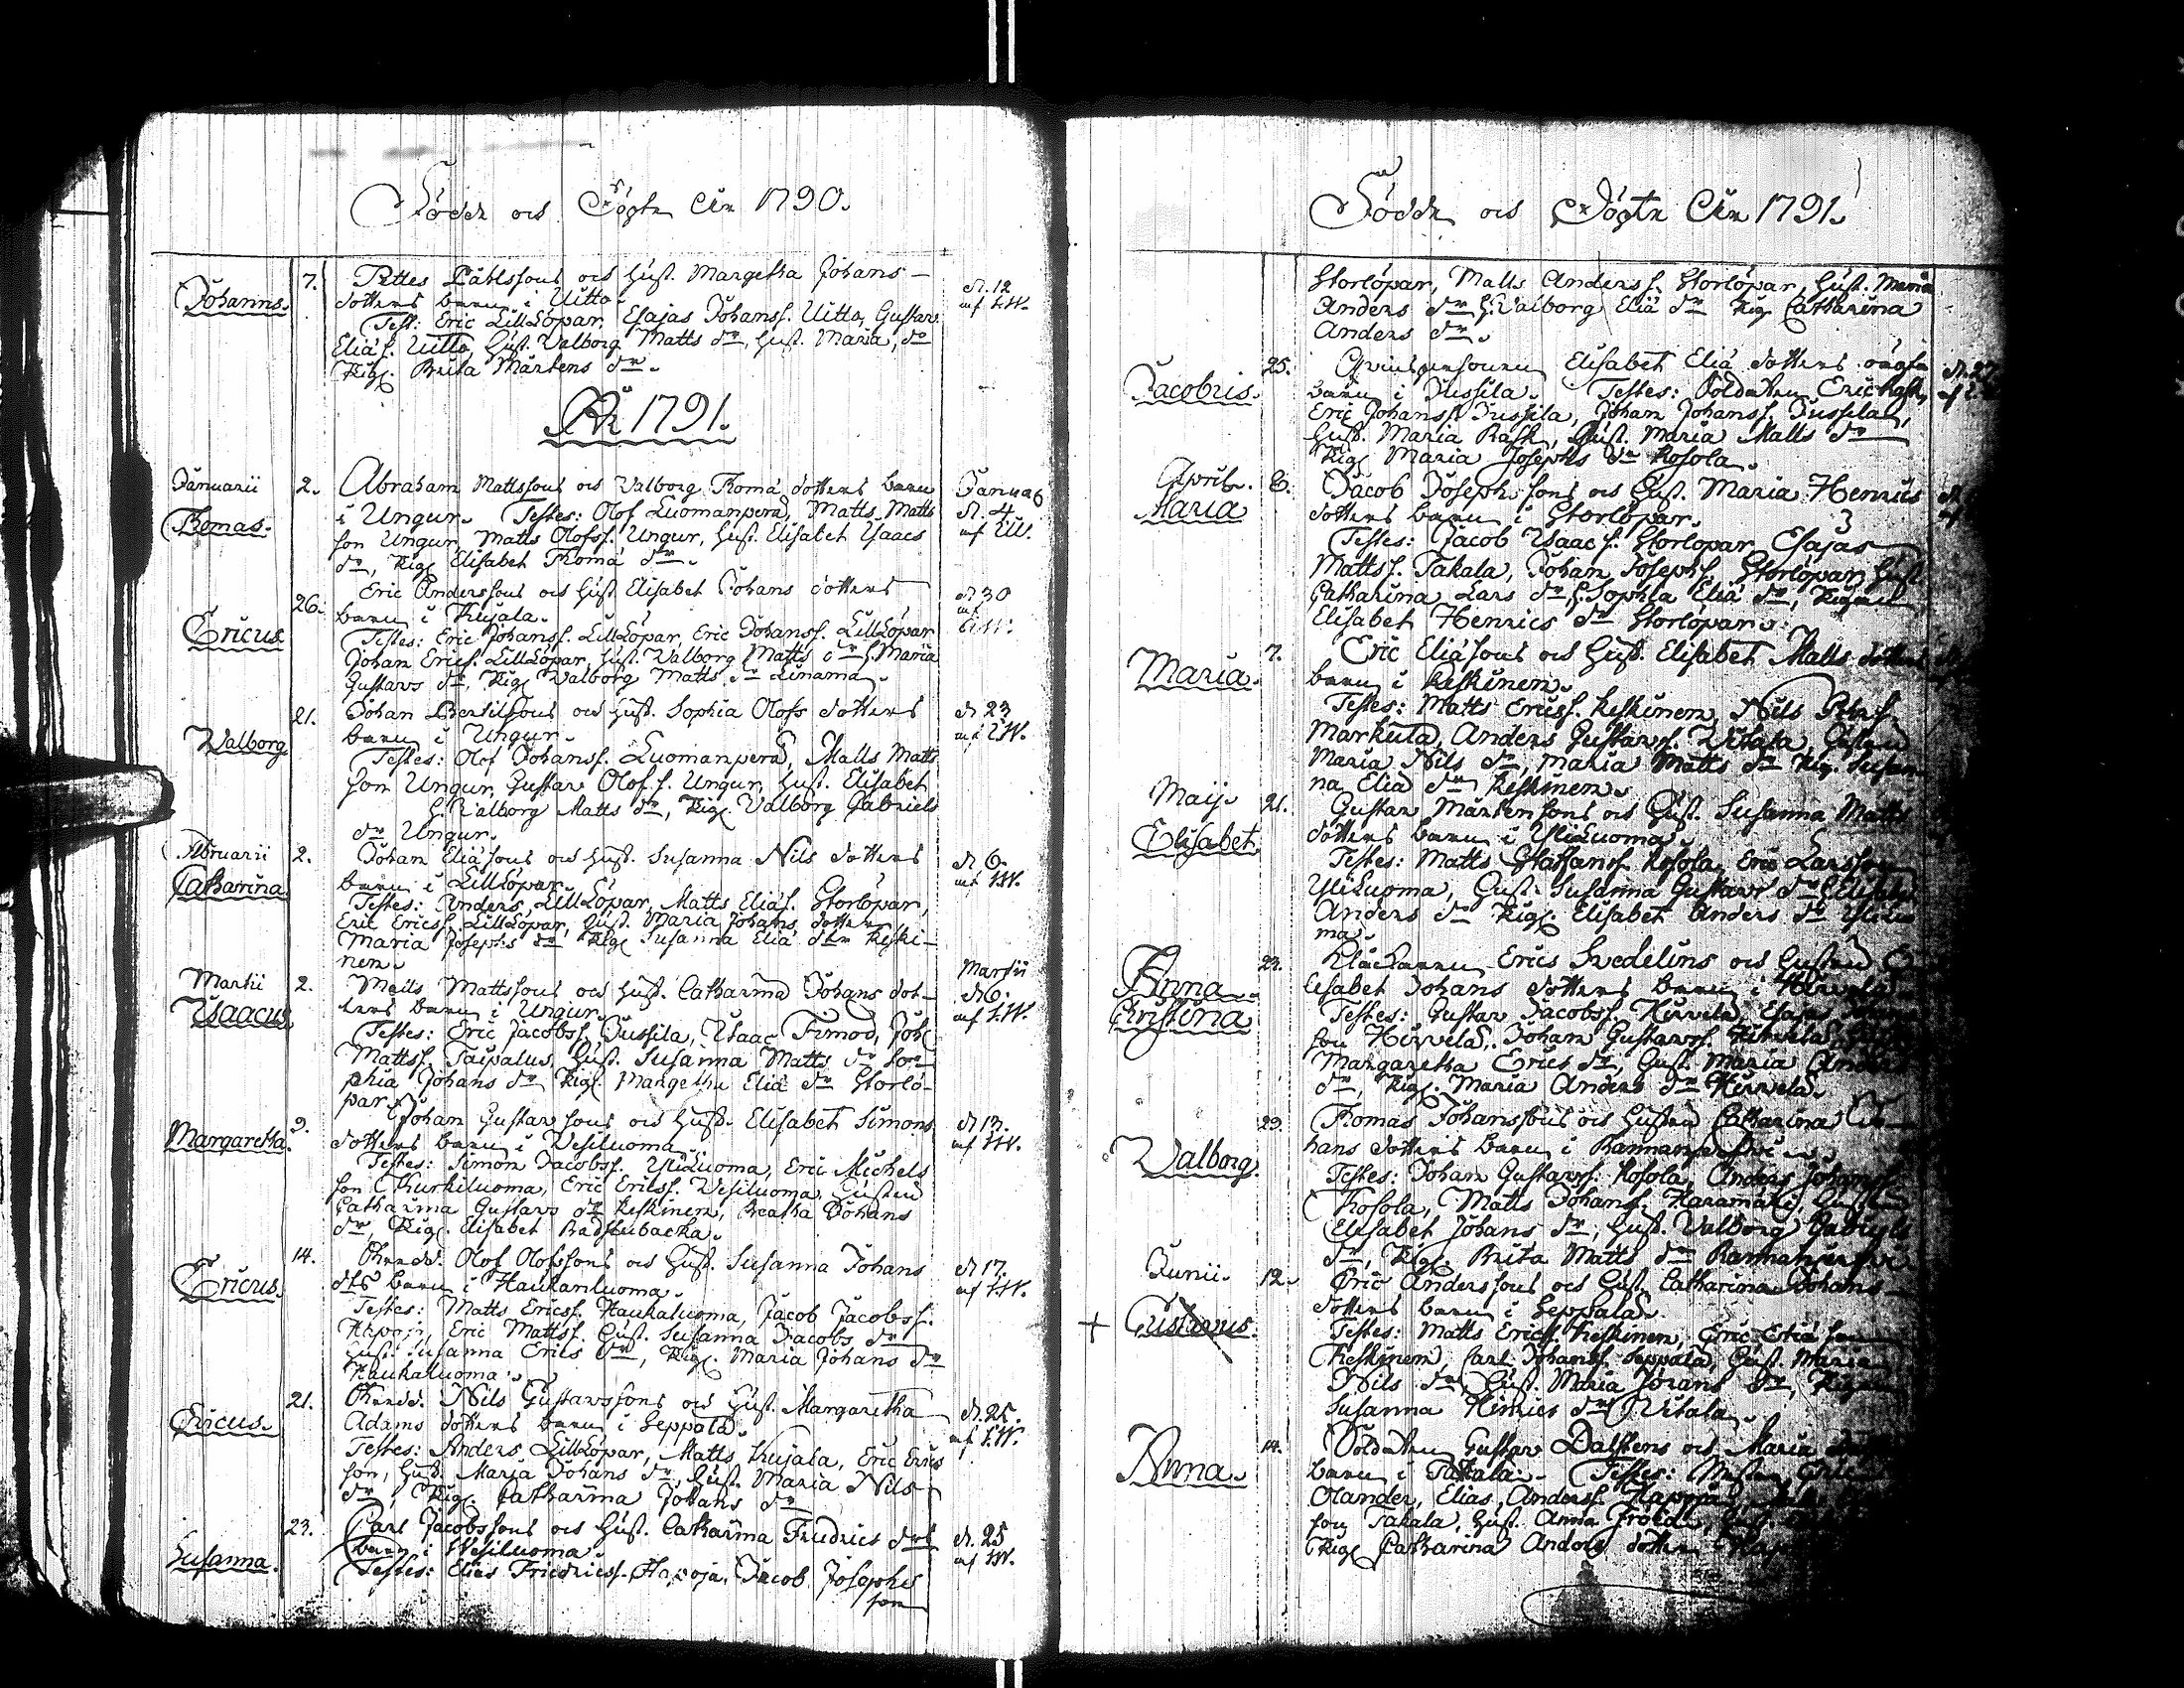 Födde och Döpte Åhr 1790.
Johannes. 7. Pettes Påhlssons och Hust. Margetha Johans- d. 12
dotters barn i Uitto. af S.W.
Test: Eric LillLöpar, Esajas Johanss. Uitto, Gustav
Eliæs. Uitto, Hust. Valborg Matts dr, Hust. Maria, dr
Pig. Brita Mårtens dr.
Åhr 1791.
Januarii 2. Abraham Mattssons och Valborg Thomæ dotters barn Januar
Thomas. i Ungur. Testes: Olof Luomanperä, Matts Matts d. 4
son Ungur, Matts Olofss. Ungur, Hust. Elisabet Isaacs af
dr, Pig. Elisabet Thomæ dr.
Eric Anderssons och Hust Elisabet Johans dotters d. 30
26. barn i Kujala. af
Ericus Testes: Eric Johanss. LillLöpar, Eric Johanss. LillLöpar
Johan Erics. LillLöpar, Hust. Valborg Matts dr, H. Maria
Gustavs dr, Pig. Valborg Matts dr Linama.
21. Johan Bertilssons och Hust. Sophia Olofs dotters d. 23
Walborg barn i Ungur. af S.W.
Testes: Olof Johanss. Luomanperä, Matts Matts
son Ungur, Gustav Olofs. Ungur, Hust. Elisabet
H. Valborg Matts dr, Pig. Valborg Gabriels
dr Ungur.
Februarii 2. Johan Eliæsons och Hust. Susanna Nils dotters d. 6.
Catharina barn i LillLöpar. af S.W.
Testes: Anders LillLöpar, Matts Eliæs. Storlöpar,
Eric Ericss. LillLöpar, Hust. Maria Johans dotter
Maria Josephs dr Pig. Susanna Eliæ dtr Keski-
nem.
Martii 2. Matts Mattssons och Hust. Catharina Johans dot- Martii
Isaacus ters barn i Ungur. d. 6. af S.W.
Testes: Eric Jacobss. Jussila, Isaac Timod, Joh.
Mattss. Saipalus, Hust. Susanna Matts dr So-
phia Johans dr Pig. Margetha Eliæ dr Storlö-
par.
Margaretha. 9. Johan Gustavsons och Hust. Elisabet Simons d. 13.
dotters barn i Vesiluoma. af S.W.
Testes: Simon Jacobss. YliLuoma, Eric Michels
son Kurkiluoma, Eric Ericss. Vesiluoma, Hustru
Catharina Gustavs dr Keskinem, Beatha Johans
dr, Pig. Elisabet Badstubacka.
14. Olof Olofssons och Hust. Susanna Johans d. 17.
Ericus. dtrs barn i Haukanluoma. af S.W.
Testes: Matts Ericss. Haukaluoma, Jacob Jacobss.
Havoja, Eric Mattss. Hust. Susanna Jacobs dr
Hust. Susanna Erics dr, Pig. Maria Johans dr
Haukaluoma.
21. Nils Gustavssons och Hust. Margaretha d. 25.
Ericus. Adams dotters barn i Seppälä. af S.W.
Testes: Anders LillLöpar, Matts Kujala, Eric Erics
son, Hust. Maria Johans dr, Hust. Maria Nils
dr, Pig. Catharina Johans dr
23. Carl Jacobssons och Hust. Catharina Fredrics drs d. 25
Susanna. barn i Wesiluoma. af S.W.
Testes: Elias Friedricss. Havoja, Jacob Josephs
son
Födde och Döpte Åhr 1791.
Storlöpar, Matts Anderss. Storlöpar, Hust. Maria
Anders dr H. Valborg Eliæ dr Pig. Catharina
Anders dr.
25. Elisabet Eliæ dotters oägta d. 27
Jacobus. barn i Jussila. Testes: Soldaten Eric Rask,
Eric Johanss. Jussila, Johan Johanss. Jussila,
Hust. Maria Rask, Hust. Maria Matts dr
Pig. Maria Josephs dr Kosola.
April. 6. Jacob Josephsons och Hust. Maria Henrics
Maria dotters barn i Storlöpar.
Testes: Jacob Isaacs. Storlöpar, Esajas
Mattss. Takala, Johan Josephs. Storlöpar, Hust.
Catharina Lars dr, H. Sophia Eliæ dr, Pigan
Elisabet Henrics dr Storlöpar.
7. Eric Eliæsons och Hust. Elisabet Matts dotters
Maria. barn i Keskinem.
Testes: Matts Ericss. Keskinem, Nils Pehrs.
Markula, Anders Gustavs. Vitala, Hustru
Maria Nils dr, Maria Matts dr Pig. Susan-
na Eliæ dr Keskinem.
Maij. 21. Gustav Mårtensons och Hust. Susanna Matts
Elisabet dotters barn i YliLuoma.
Testes: Matts Staffanss. Kosola, Eric Larsson
YliLuoma, Hust. Susanna Gustavs dr, H. Elisabet
Anders dr Pig. Elisabet Anders dr Yliluo
ma.
Anna 23. Klåckaren Erics Svedelins och Hustru E-
Christina lisabet Johans dotters barn i Hirvelä.
Testes: Gustav Jacobss. Hirvelä, Esajas
son Hirvelä, Johan Gustavss. Hirvelä,
Margaretha Erics dr, Hust. Maria Anders
dr, Pig. Maria Anders dr Hirvelä.
29. Thomas Johanssons och Hustru Catharina Jo-
Valborg. hans dotters barn i
Testes: Johan Gustavss. Kosola, Anders Johanss.
Kosola, Matts Johanss. Haramäki, Hustru
Elisabet Johans dr, Hust. Valborg Gabriels
dr, Pig. Brita Matts dr
Junii. 12. Eric Anderssons och Hust. Catharina Johans-
+ Gustavus. dotters barn i Seppälä.
Testes: Matts Erics. Keskinem, Eric Eliæ son
Keskinem, Carl Johanss. Seppälä, Hust. Maria
Nils dr, Hust. Maria Johans dr, Pigan
Susanna Hinrics dr Vitala.
14. Soldaten Gustav Dalstens och Maria
Anna. barn i Takala. Testes:
Olander, Elias Anderss.
son Takala, Hust. Anna
Pig. Catharina Anders dotter